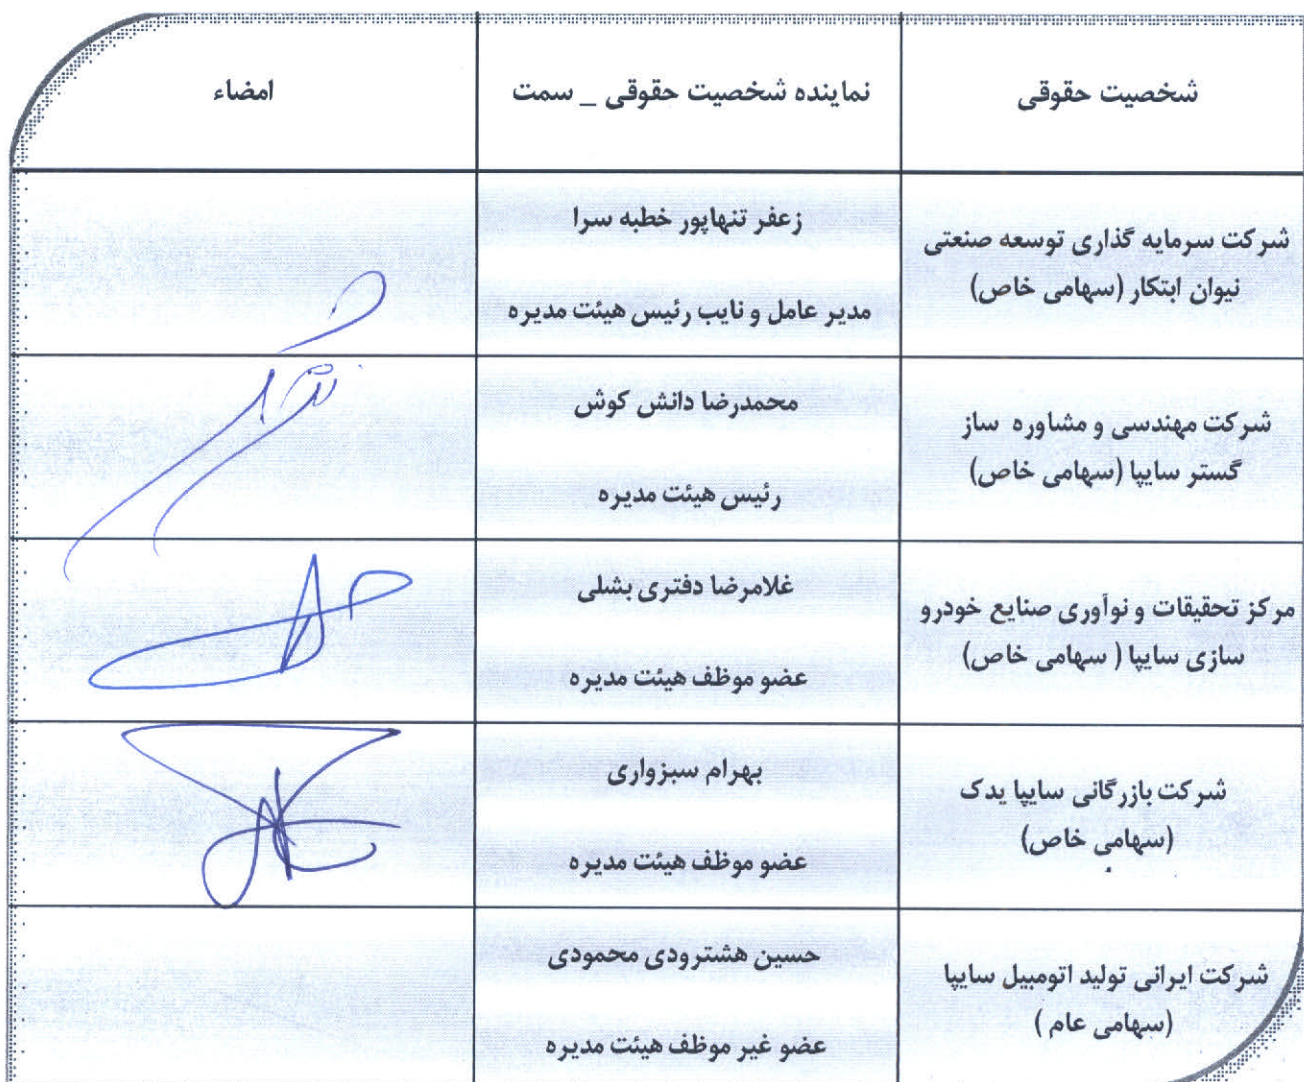 شخصیت حقوقی
نماینده شخصیت حقوقی _ سمت
امضاء
شرکت سرمایه گذاری توسعه صنعتی
نیوان ابتکار (سهامی خاص)
زعفر تنهاپور خطبه سرا
مدیر عامل و نایب رئیس هیئت مدیره
شرکت مهندسی و مشاوره ساز
گستر سایپا (سهامی خاص)
محمدرضا دانش کوش
رئیس هیئت مدیره
مرکز تحقیقات و نوآوری صنایع خودرو
سازی سایپا ( سهامی خاص)
غلامرضا دفتری بشلی
عضو موظف هیئت مدیره
شرکت بازرگانی سایپا یدک
(سهامی خاص)
بهرام سبزواری
عضو موظف هیئت مدیره
شرکت ایرانی تولید اتومبیل سایپا
(سهامی عام )
حسین هشترودی محمودی
عضو غیر موظف هیئت مدیره